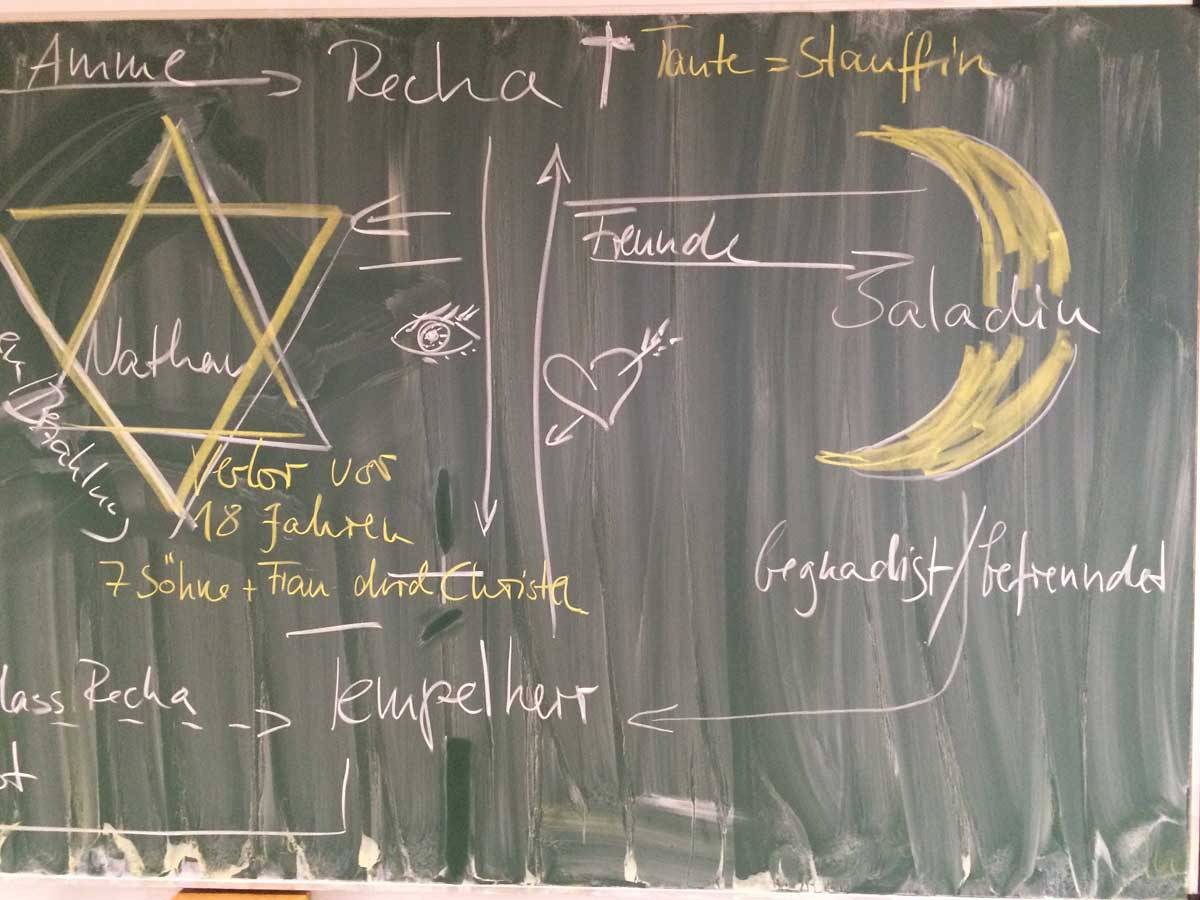 Amme Recha Tante = Stauffin
Freunde
Saladin
Nathan
Bezahlung
Verlor vor
18 Jahren
7 Söhne + Frau durch Christen
begnadigt/befreundet
dass Recha
Tempelherr